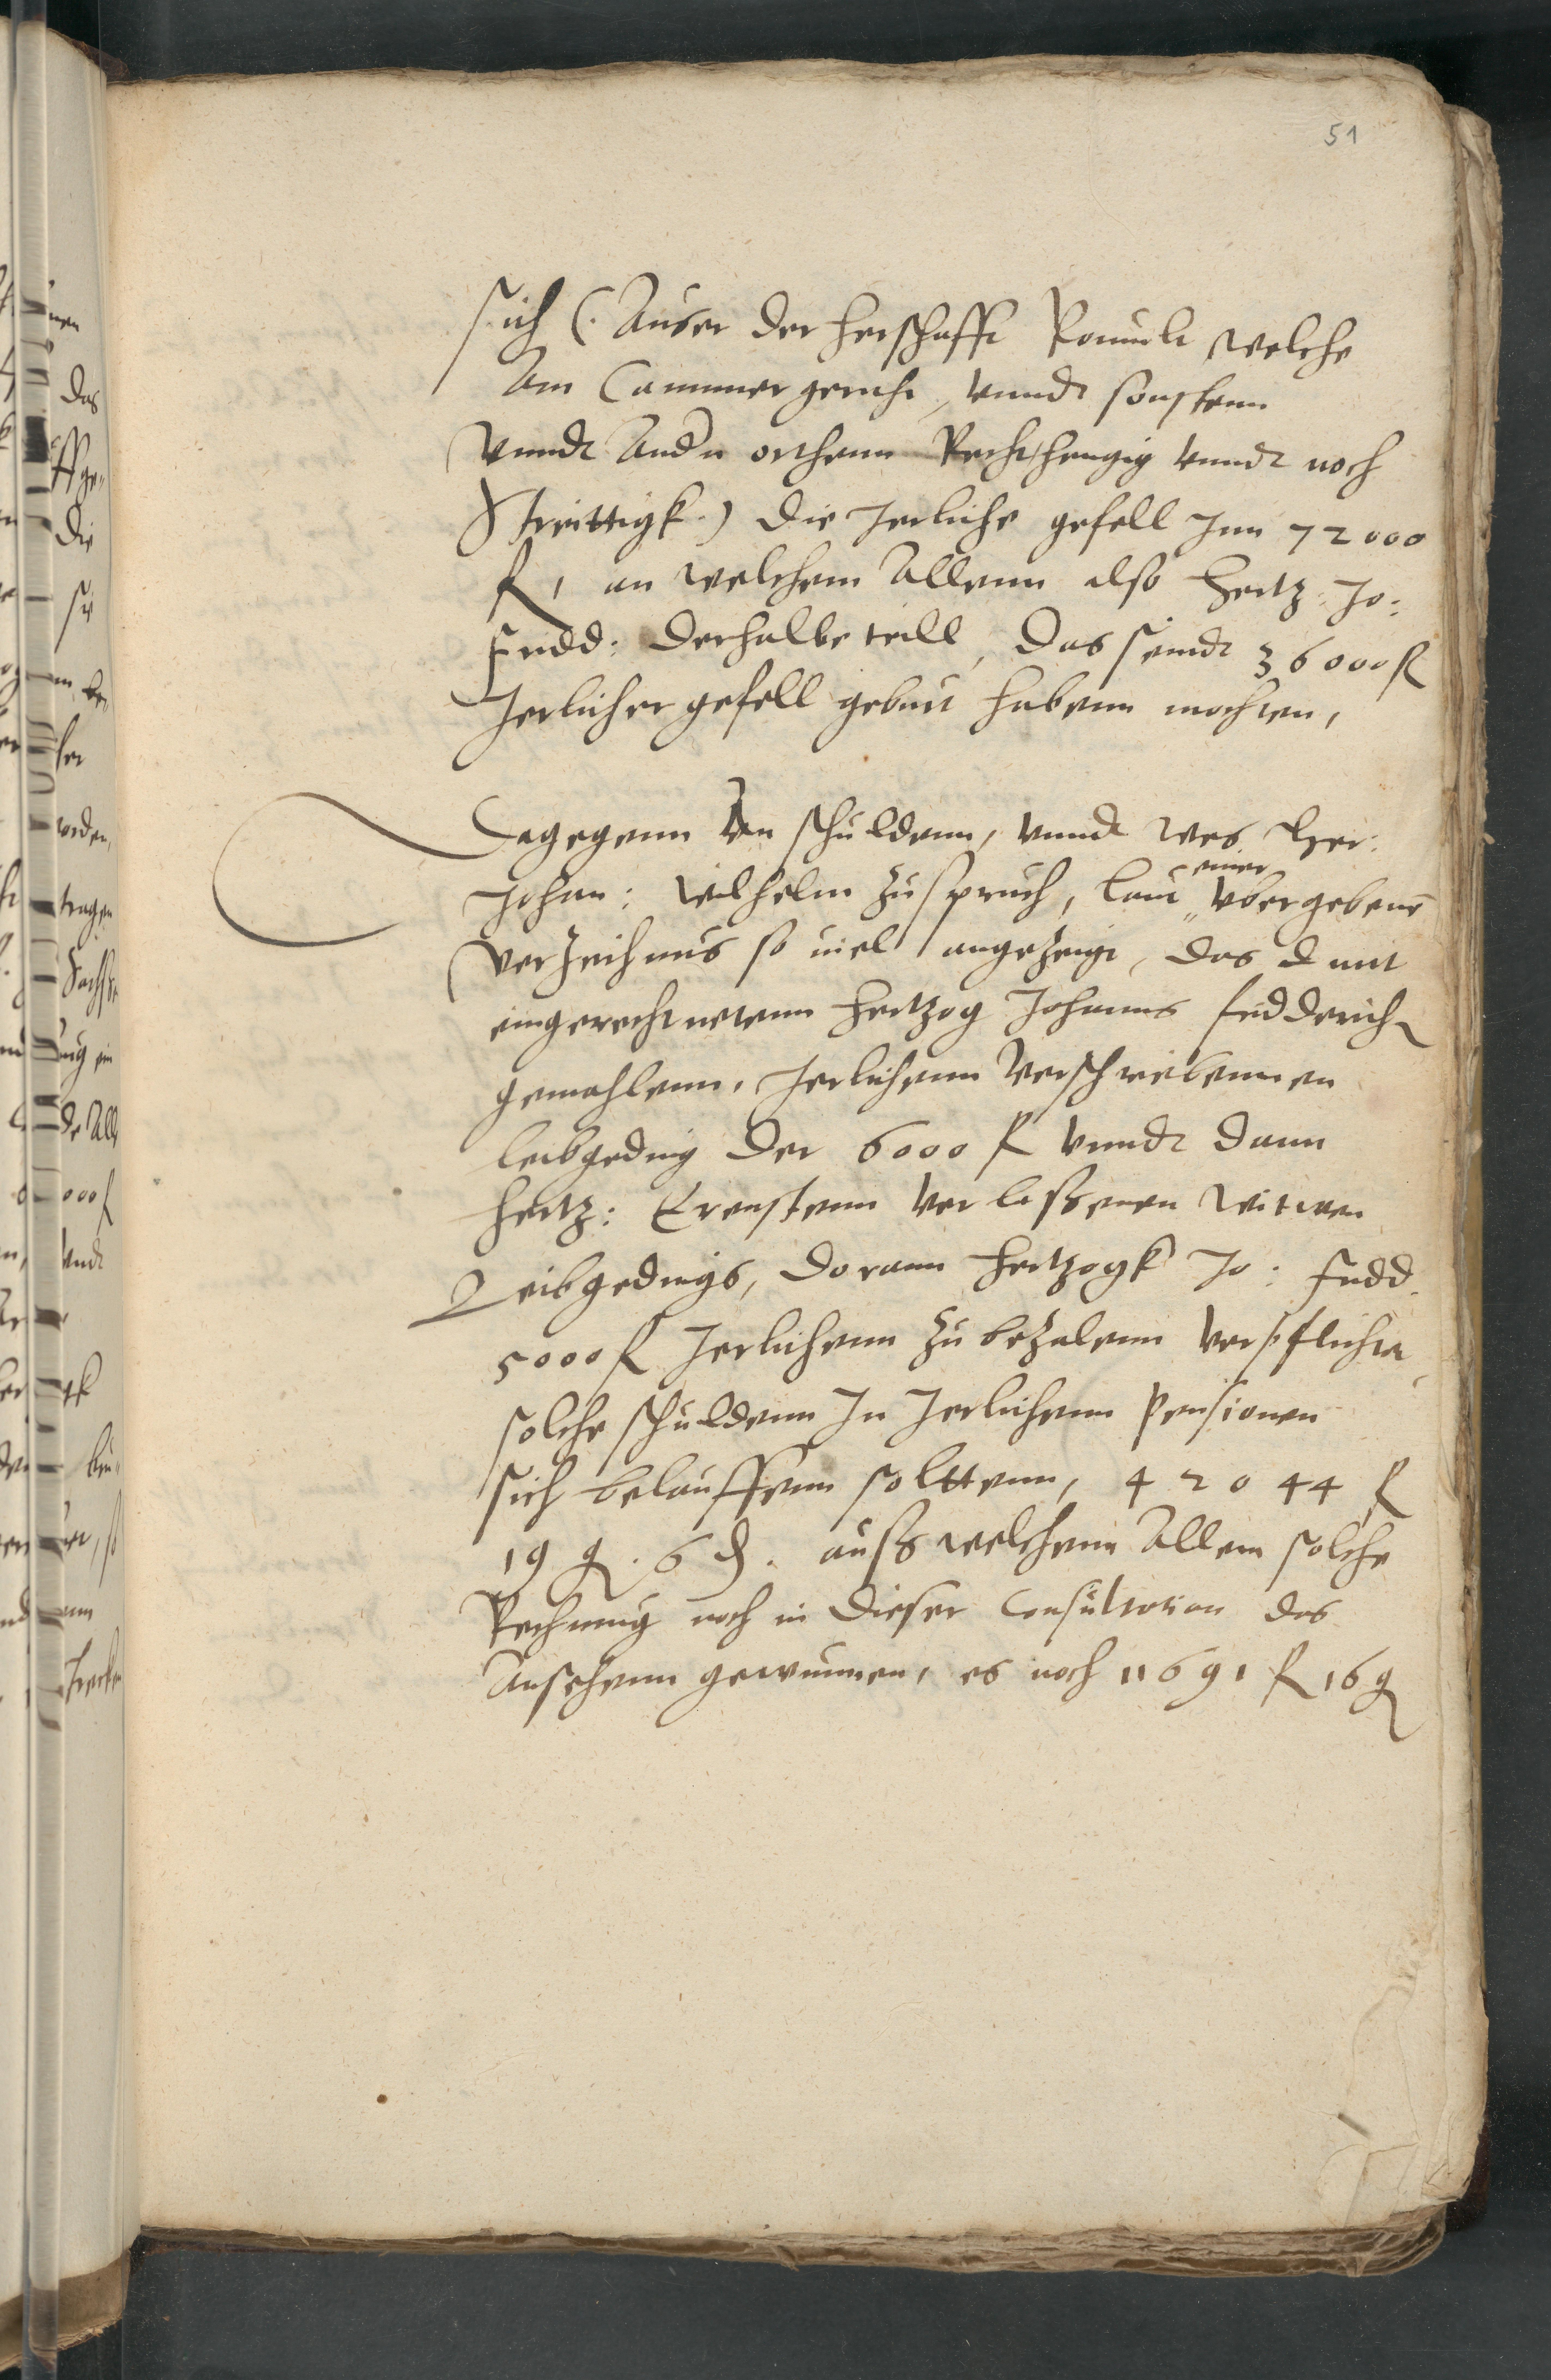 51
sich (. Auser der herschafft Römilt welche
Am Cammergericht, vnnd sonstenn
vnnd Andn orthenn Rechthengig vnnd noch
Streittigk.) die Jerliche gefell Jnn 72000
fl, an welchem Allenn also Hertz: Jo:
Fridd: der halbe teill, Das seindt 36000 fl
Jerlicher gefell geburt habenn mochten,
Dagegenn An schuldenn, vnnd wes Her:
Johan: Wilhelm zuspruch, laut einer vbergebene
verzeichnus so viel angezeigt, das damit
eingerechnetenn Hertzog Johanns fridderich
gemahlenn, Jerlichenn verschriebennen
leibgeding der 6000 fl vnnd dann
Hertz: Ernstenn verlassenen witwen
Leibgedings, dorann Hertzogk Jo: fridd.
5000 fl Jerlichenn zu bezalenn verpflicht,
solche schuldenn Jn Jerlichenn Pensionen
sich belauffenn solttenn, 42044 fl
19 g. 6 d. auss welchem Allem solche
Rechnung noch in dieser Consultation das
Ansehenn gewunnen, es noch 11691 fl 16 g